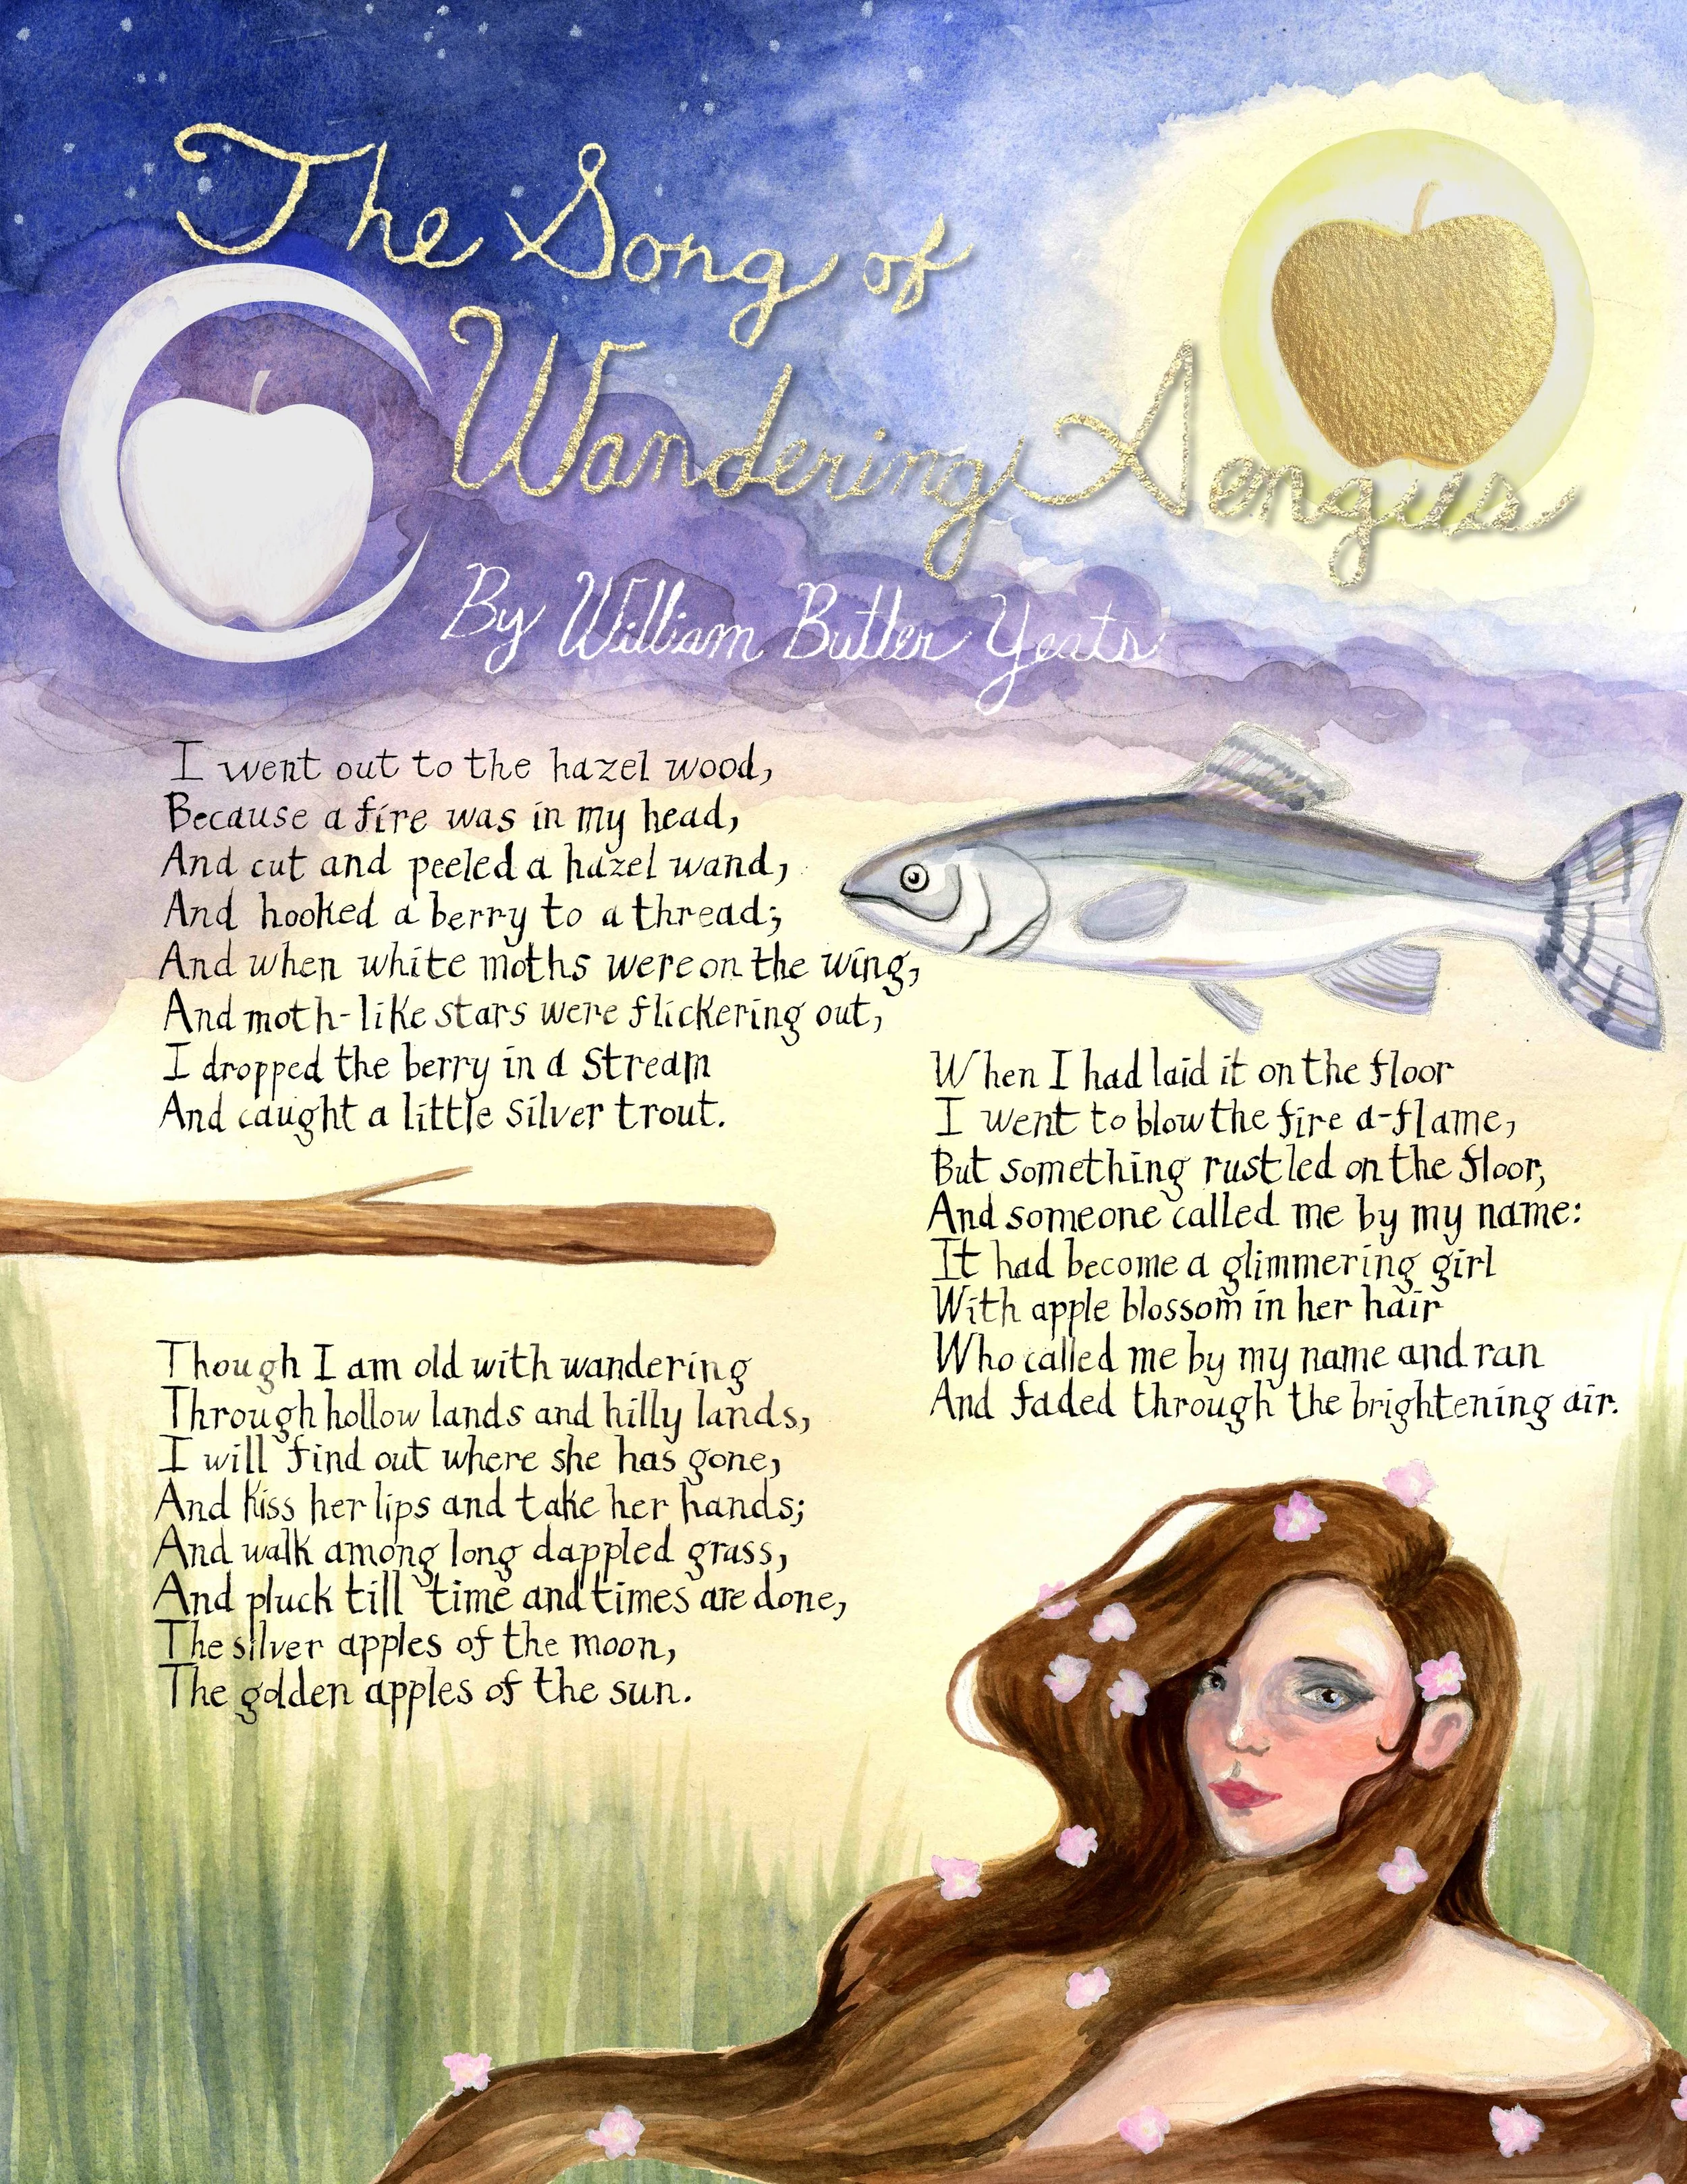 The Song of
Wandering Aengus
By William Butler Yeats
I went out to the hazel wood,
Because a fire was in my head,
And cut and peeled a hazel wand,
And hooked a berry to a thread;
And when white moths were on the wing,
And moth-like stars were flickering out,
I dropped the berry in a stream
And caught a little silver trout.
When I had laid it on the floor
I went to blow the fire a-flame,
But something rustled on the floor,
And someone called me by my name:
It had become a glimmering girl
With apple blossom in her hair
Who called me by my name and ran
And faded through the brightening air.
Though I am old with wandering
Through hollow lands and hilly lands,
I will find out where she has gone,
And kiss her lips and take her hands;
And walk among long dappled grass,
And pluck till time and times are done,
The silver apples of the moon,
The golden apples of the sun.